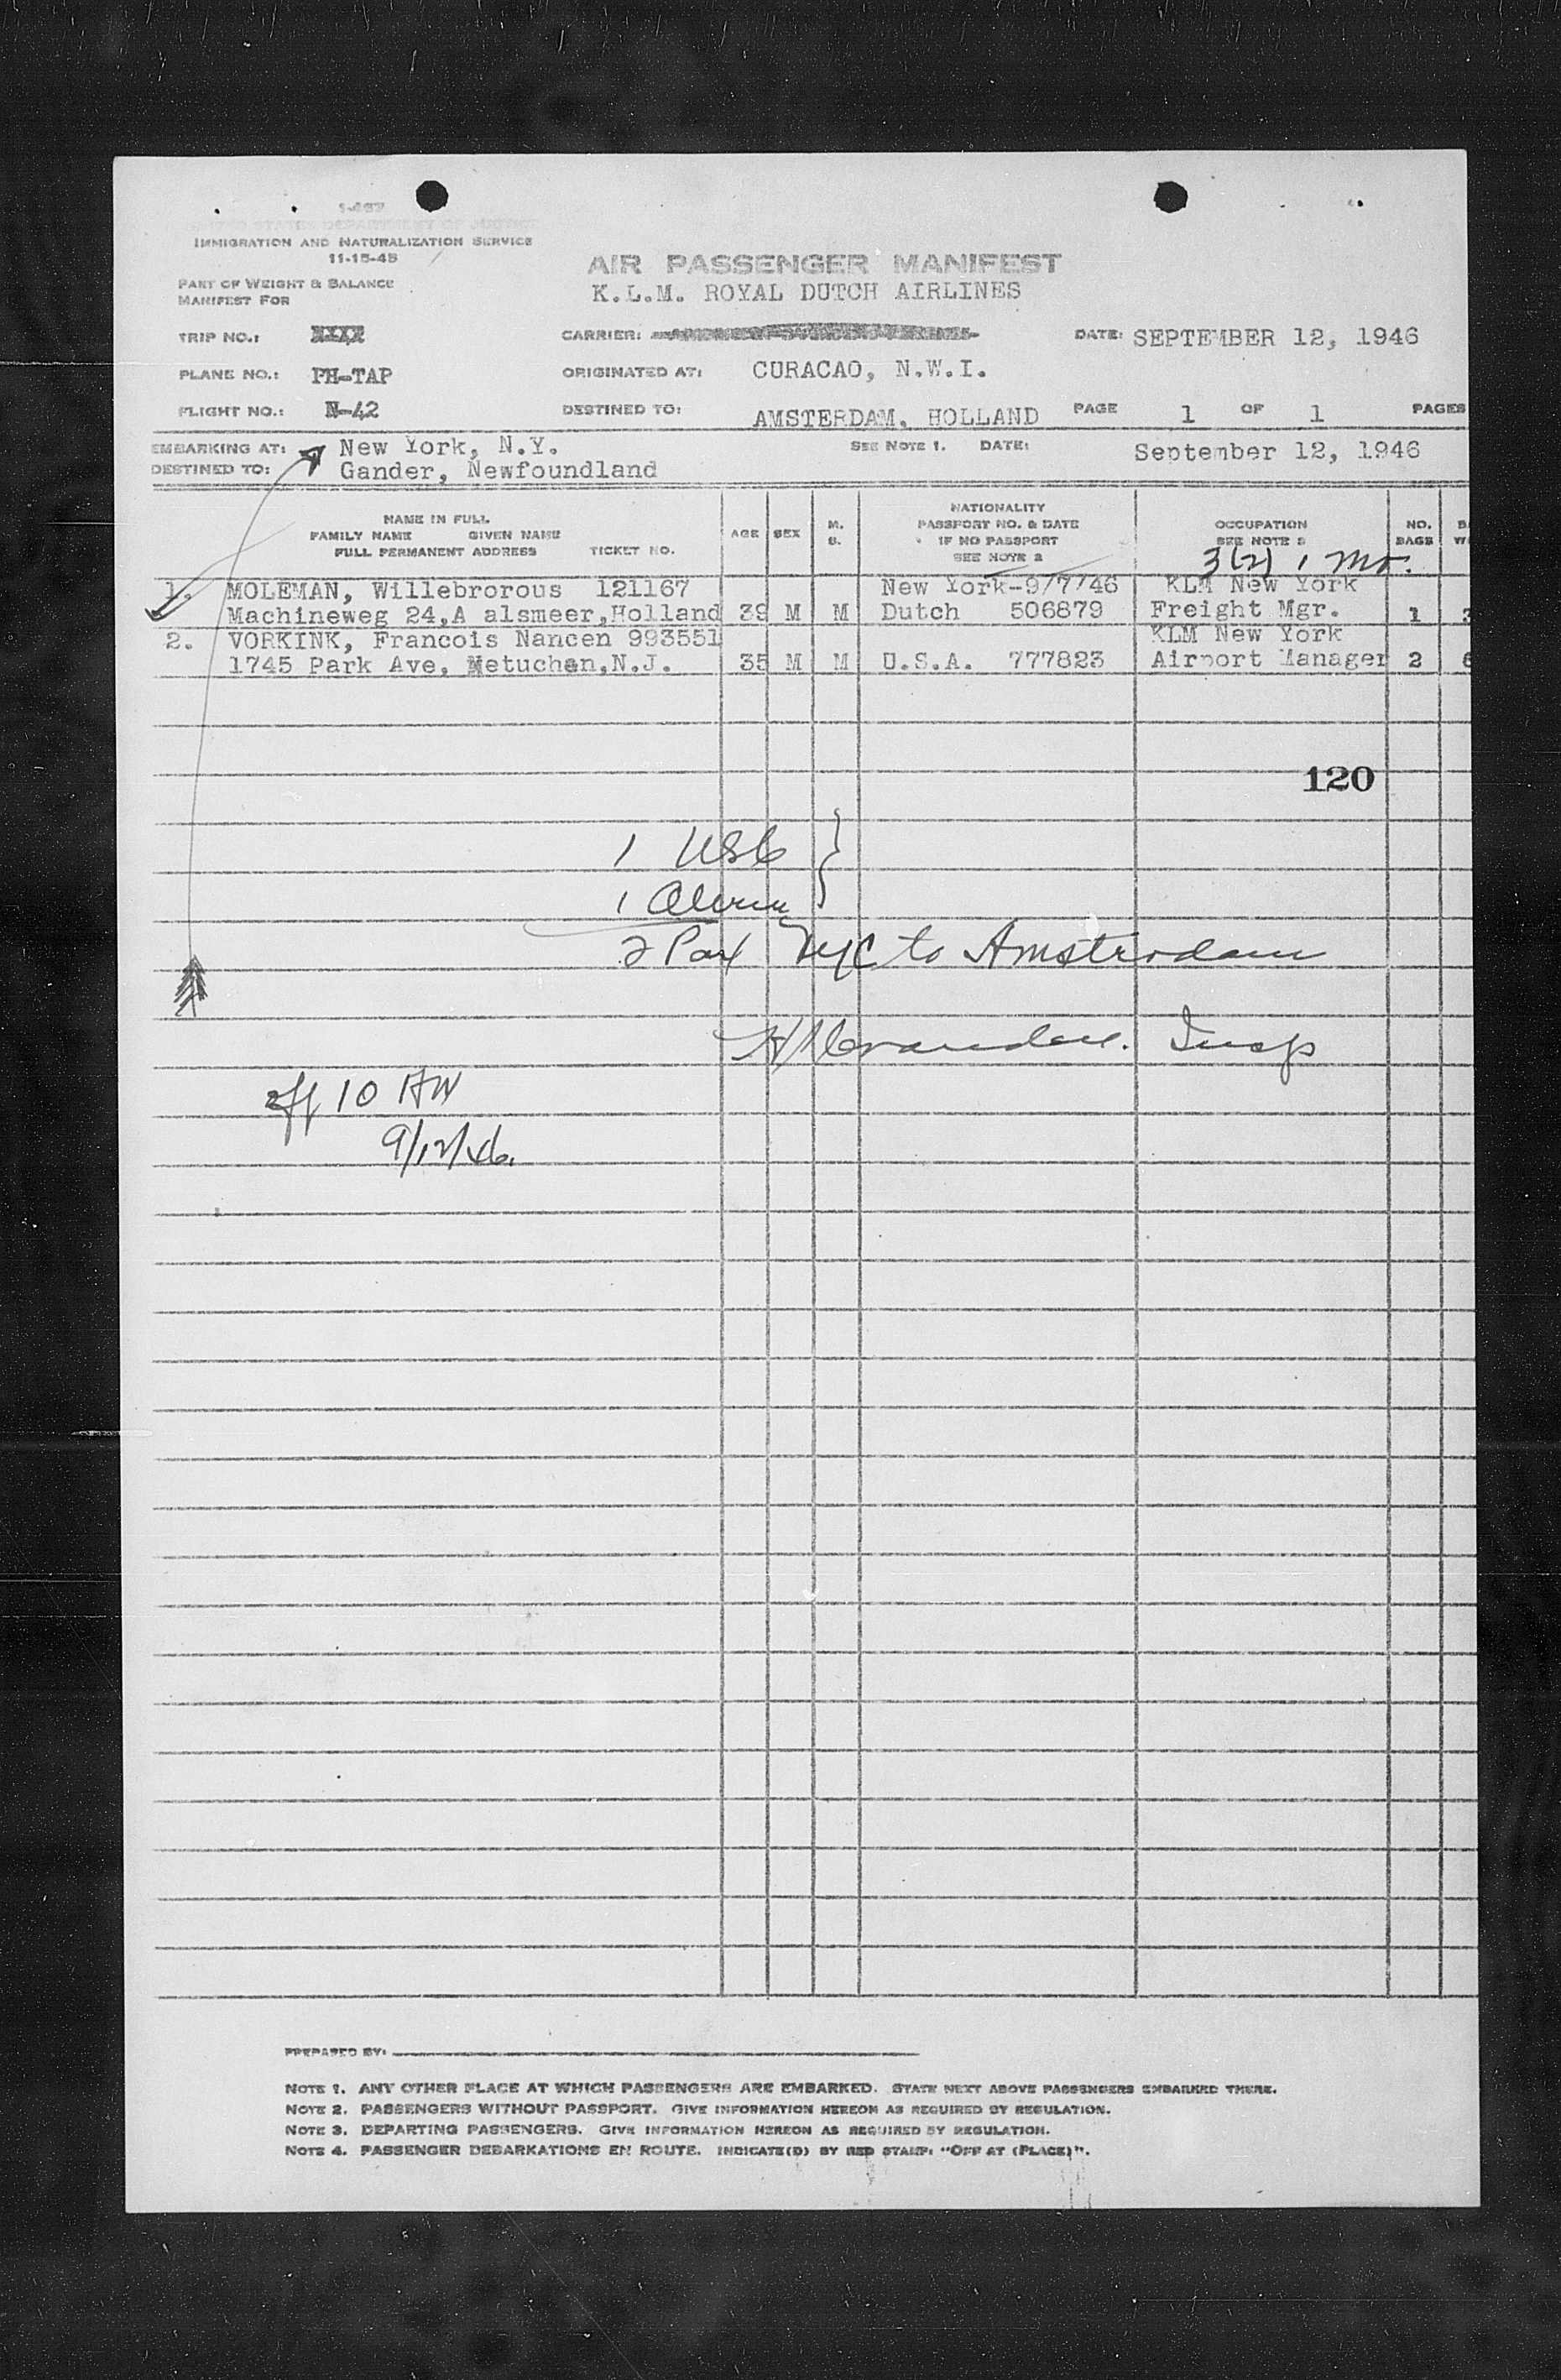 I-467
UNITED STATES DEPARTMENT OF JUSTICE
IMMIGRATION AND NATURALIZATION SERVICE
11-15-45
PART OF WEIGHT & BALANCE
MANIFEST FOR
AIR PASSENGER MANIFEST
K.L.M. ROYAL DUTCH AIRLINES
TRIP NO.: CARRIER: DATE: SEPTEMBER 12, 1946
PLANE NO.: PH-TAP ORIGINATED AT: CURACAO, N.W.I.
FLIGHT NO.: N-42 DESTINED TO: AMSTERDAM, HOLLAND PAGE 1 OF 1 PAGES
EMBARKING AT: New York, N.Y. SEE NOTE 1. DATE: September 12, 1946
DESTINED TO: Gander, Newfoundland
NAME IN FULL
FAMILY NAME GIVEN NAME
FULL PERMANENT ADDRESS TICKET NO.
AGE SEX M. S.
NATIONALITY
PASSPORT NO. & DATE
IF NO PASSPORT
SEE NOTE 2
OCCUPATION
SEE NOTE 3
NO. BAGS
3(2) 1 Mo.
1. MOLEMAN, Willebrorous 121167 New York-9/7/46 KLM New York
Machineweg 24,A alsmeer,Holland 39 M M Dutch 506879 Freight Mgr. 1
2. VORKINK, Francois Nancen 993551 KLM New York
1745 Park Ave, Metuchen,N.J. 35 M M U.S.A. 777823 Airport Manager 2
120
1 USC
1 Alien
2 Pax NYC to Amstrodam
Insp
off 10 AM
9/12/46.
PREPARED BY:
NOTE 1. ANY OTHER PLACE AT WHICH PASSENGERS ARE EMBARKED. STATE NEXT ABOVE PASSENGERS EMBARKED THERE.
NOTE 2. PASSENGERS WITHOUT PASSPORT. GIVE INFORMATION HEREON AS REQUIRED BY REGULATION.
NOTE 3. DEPARTING PASSENGERS. GIVE INFORMATION HEREON AS REQUIRED BY REGULATION.
NOTE 4. PASSENGER DEBARKATIONS EN ROUTE. INDICATE(D) BY RED STAMP: "OFF AT (PLACE)".